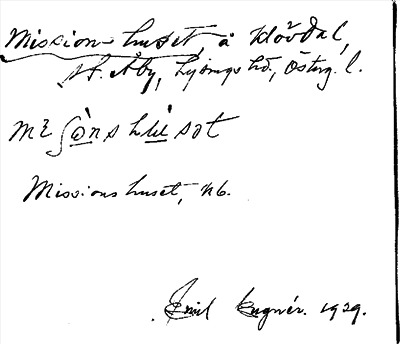 Missionshuset, å Klövdal,
V. Åby, Lysings hd, Österg. l.
mɛʃὼnshʉ̀sət
Missionshuset, Nb.
Emil 1929.